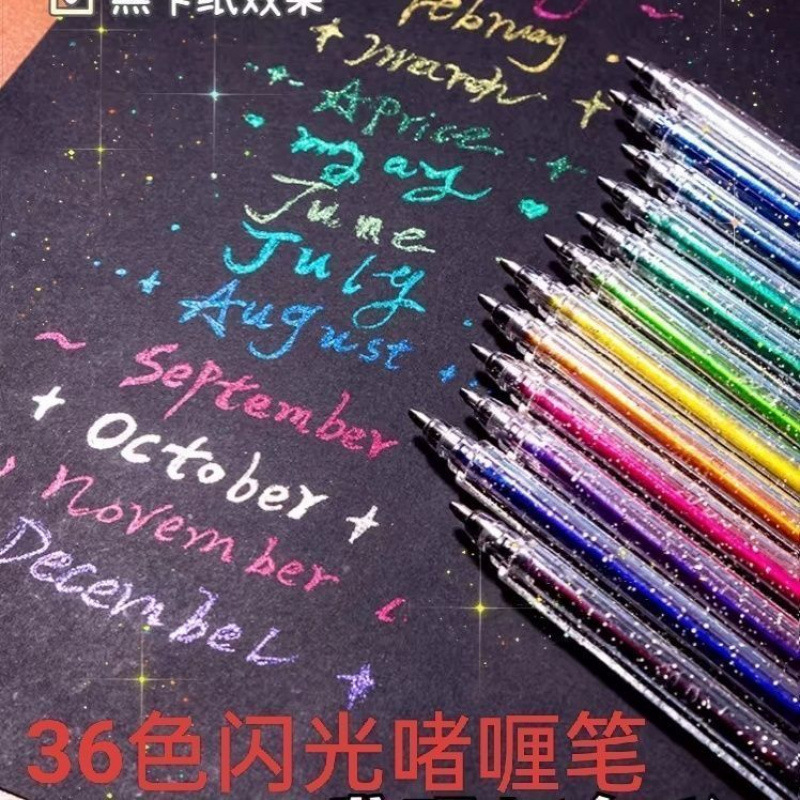 黑卡纸效果
February
march
Aprice
may
June
July
August
September
October
november
December
36色闪光啫喱笔